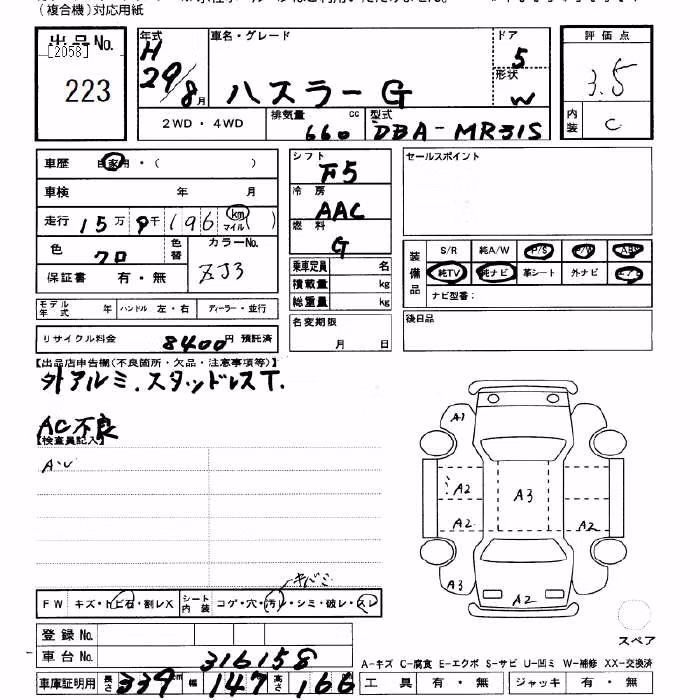 (複合機)対応用紙
出品No.
[2058]
223
年式
H
29/8月
車名・グレード
ハスラー G
ドア
5
形状
W
評価点
3.5
内装
C
2WD・4WD
排気量 660 cc
型式 DBA-MR31S
車歴 自家用・( )
車検 年 月
走行 15万 9千 (196) km マイル
色 クロ 色替
カラーNo. ZJ3
保証書 有・無
シフト
F5
冷房
AAC
燃料
G
乗車定員 名
積載量 kg
総重量 kg
セールスポイント
装備品
S/R 純A/W P/S P/W ABS
純TV 純ナビ 革シート 外ナビ
ナビ型番:
モデル年式 年 ハンドル 左・右 ディーラー・並行
リサイクル料金 8400円 預託済
名変期限
月 日
後日品
【出品店申告欄(不良箇所・欠品・注意事項等)】
外アルミ.スタッドレスT.
AC不良
【検査員記入】
A1
A2
A3
A2
A2
A3
A2
キバミ
FW キズ・トビ石・割レX
シート内装 コゲ・穴・汚レ・シミ・破レ・スレ
登録No.
車台No. 316158
車庫証明用 長さ 339cm 幅 147 高さ 166
スペア
A-キズ C-腐食 E-エクボ S-サビ U-凹ミ W-補修 XX-交換済
工具 有・無 ジャッキ 有・無